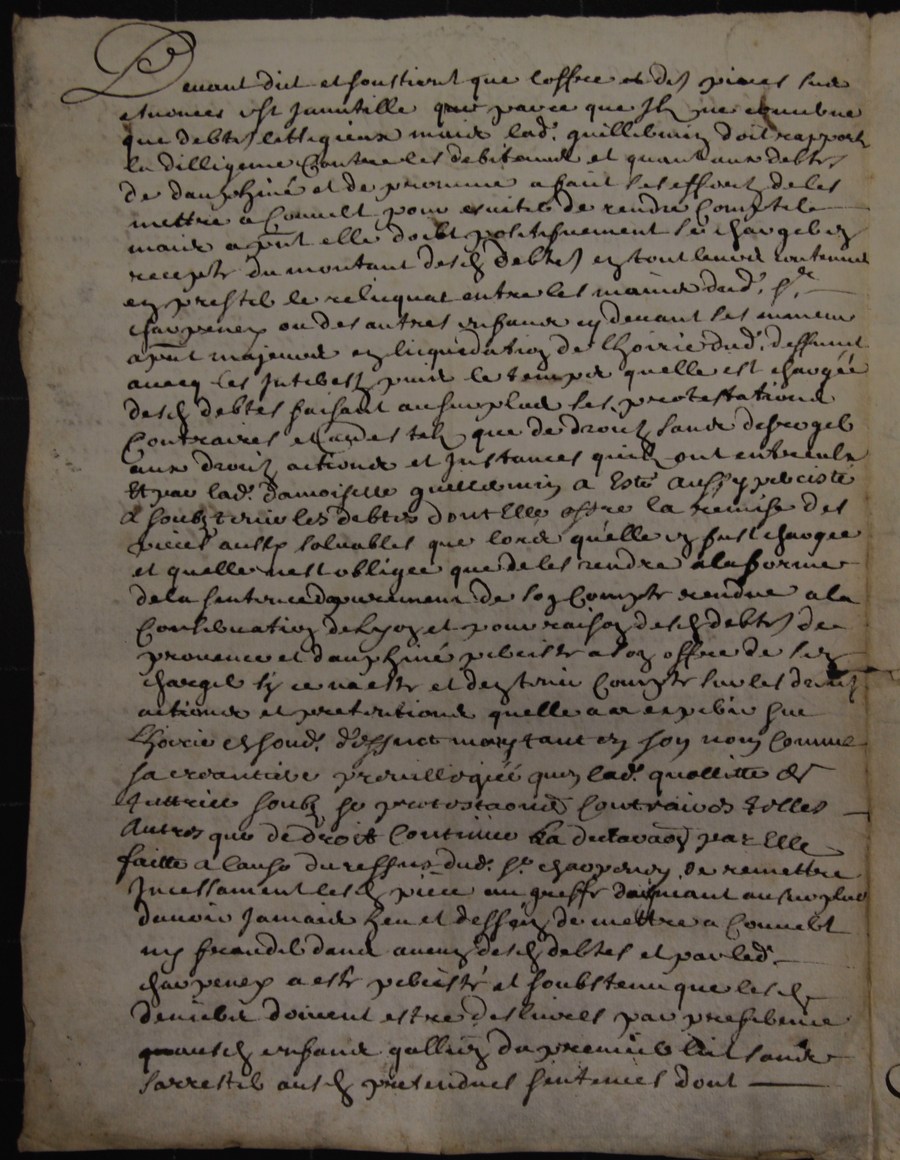 Devant dit et soustient que loffre des pieces sus
enoncees est Innutille parce que Ilz ne
que debtes littigieux mais lad. guillermin doit rapporter
la dilligence Contre les debiteurs et quant aux debtes
de dauphiné et de provence a faict ses effortz de les
mettre a Couvert pour eviter de rendre Compte
mais a pnt elle doibt positifvement se charger en
recepte du montant desd debtes en tout leur contenu
en prester le reliquat entre les mains dud. sr.
charpenex ou des autres enfans cy devant ses mineurs
a pnt majeurs en liquidation de lhoirie dud. deffunct
avecq les Interestz puis le temps quelle est chargée
desd debtes faisant au surplus ses protestations
Contraires et telz que de droict sans desroger
aux droictz actions et Instances quilz ont
Et par lad. damoiselle guillermin a Esté aussy persisté
& soubztenu les debtes dont Elle offre la remise des
pieces aussy solvables que lors qu'elle en fust chargee
et quelle nest obligee que de les rendre a la forme
de la sentence dapurement de son Compte rendue a la
Conservation de Lyon et pour raison desd debtes de
provence et dauphiné persiste a son offre de sen
charger sy ce na esté et den tenir Compte sur les droictz
actions et pretentions quelle a a exercer sur
Lhoirie dud. deffunct mary tant en son nom Comme
sa creantiere privillegiée quen lad. quallitte de
tuttrice soubz se protestaons Contraires & telles
Autres que de droit Continue La declaraon par Elle
faitte a Cause du reffus dud. sr. charpenex de remettre
Incessament lesd piece au greffe daniant au surplus
davoir Jamais heu et dessein de mettre a Couvert
ny frauder dans aucun desd debtes et par led.
charpenex a esté persisté et soubstenu que lesd
deniers doivent estre deslivrés par preference
ausd enfans gallien du premier lit sans
sarrester ausd pretendues sentences dont